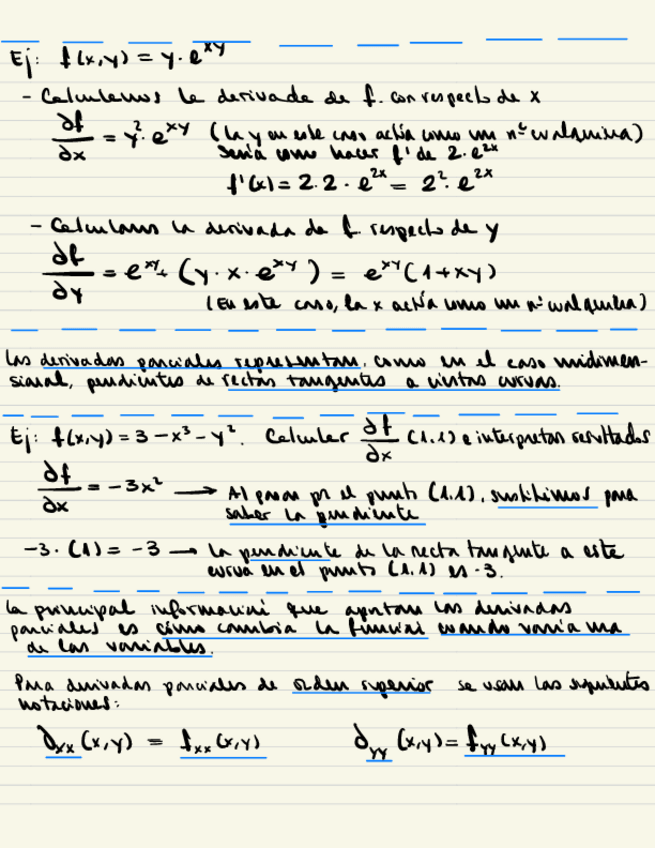 Ej: f(x,y) = y · e^xy
- Calculamos la derivada de f. con respecto de x
∂f/∂x = y² · e^xy (la y en este caso actúa como un nº cualquiera)
Sería como hacer f' de 2 · e^2x
f'(x) = 2 · 2 · e^2x = 2² · e^2x
- Calculamos la derivada de f. respecto de y
∂f/∂y = e^xy + (y · x · e^xy) = e^xy (1+xy)
(En este caso, la x actúa como un nº cualquiera)
Las derivadas parciales representan, como en el caso unidimen-
sional, pendientes de rectas tangentes a ciertas curvas.
Ej: f(x,y) = 3 - x³ - y². Calcular ∂f/∂x (1,1) e interpretar resultados
∂f/∂x = -3x² → Al pasar por el punto (1,1), sustituimos para
saber la pendiente
-3 · (1) = -3 → La pendiente de la recta tangente a esta
curva en el punto (1,1) es -3.
La principal información que aportan las derivadas
parciales es cómo cambia la función cuando varía una
de las variables.
Para derivadas parciales de orden superior se usan las siguientes
notaciones:
∂xx (x,y) = fxx (x,y) ∂yy (x,y) = fyy (x,y)